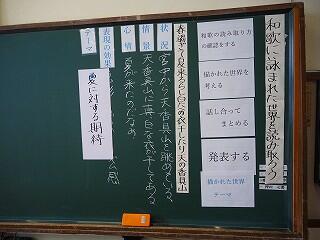 和歌に詠まれた世界を読み取ろう
和歌の読み取り方
の確認をする
描かれた世界を
考える
話し合って
まとめる
発表する
描かれた世界
テーマ
春過ぎて夏来るらし白たへの衣干したり天の香具山
状況
宮中から天香具山を眺めている。
情景
天香具山に真白な衣が干してある。
心情
夏が来たのだなあ
表現の効果
感
テーマ
夏に対する期待